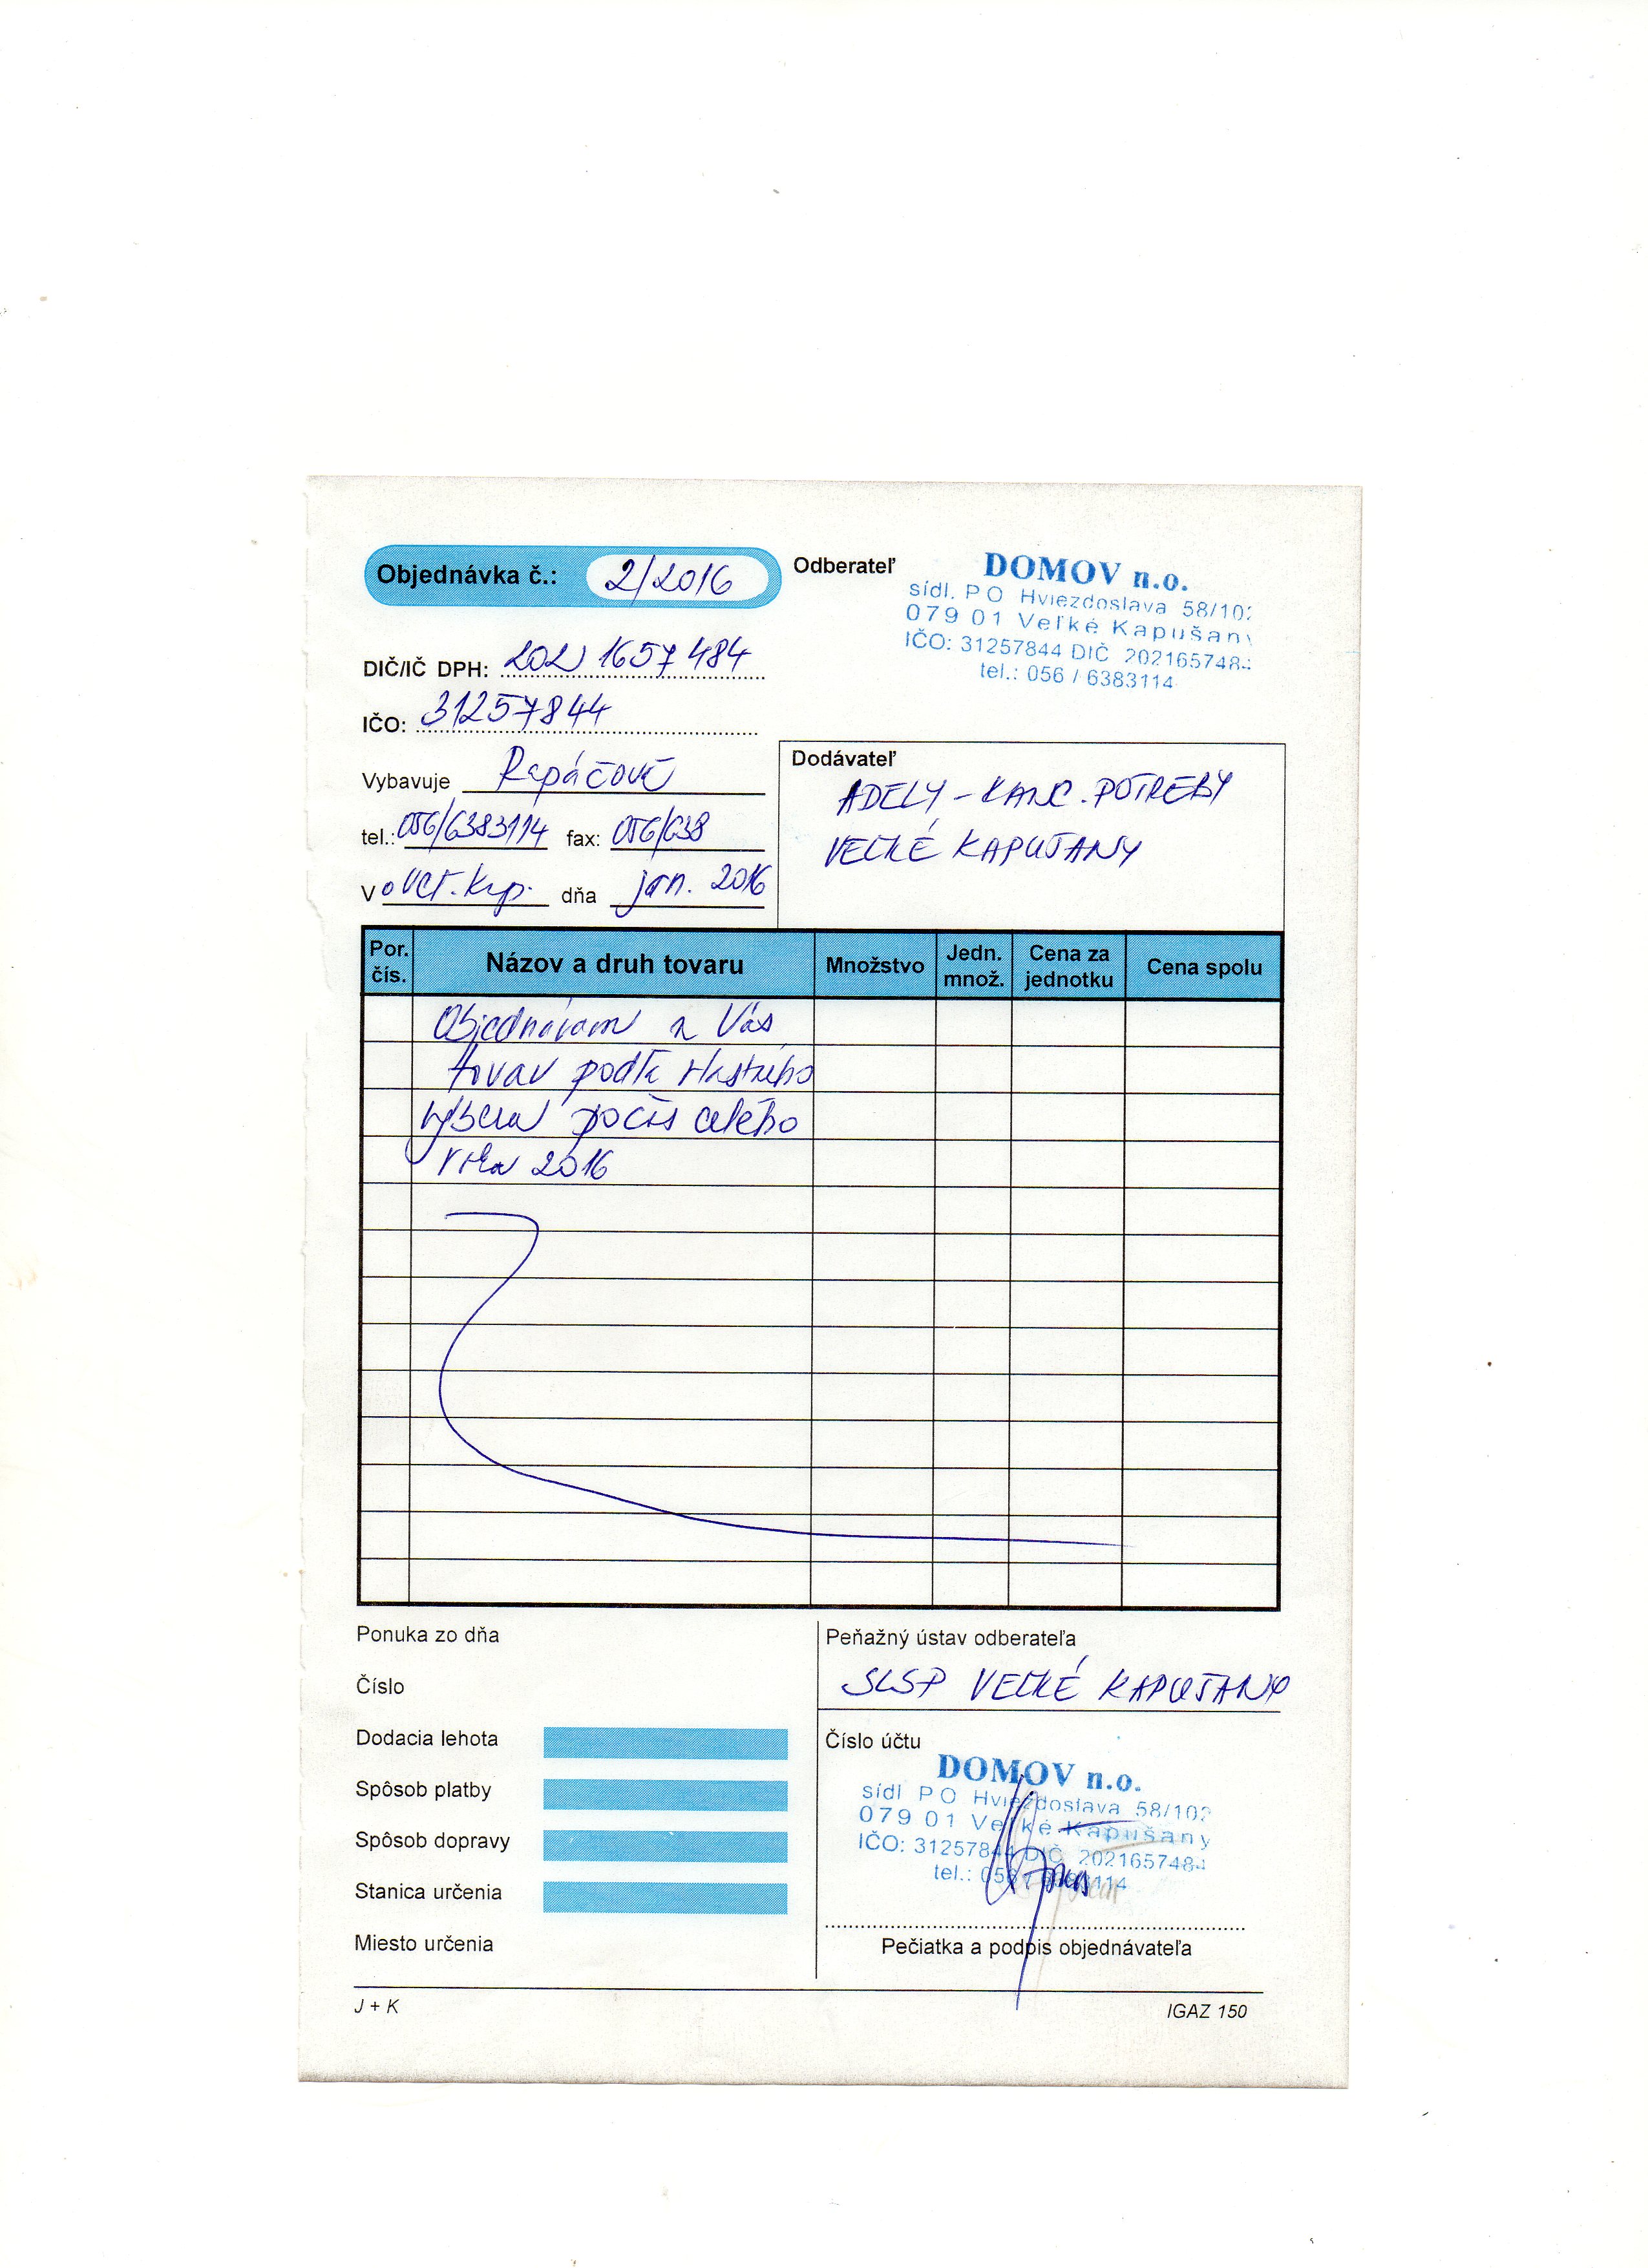 Objednávka č.: 2/2016
Odberateľ
DOMOV n.o.
sídl. P O Hviezdoslava 58/102
079 01 Veľké Kapušany
IČO: 31257844 DIČ 2021657484
tel.: 056 / 6383114
DIČ/IČ DPH: 2021657484
IČO: 31257844
Vybavuje Rapáčová
tel.: 056/6383114 fax: 056/638
V o Veľ. Kap. dňa jan. 2016
Dodávateľ
ADELY - KANC. POTREBY
VEĽKÉ KAPUŠANY
Por. čís. Názov a druh tovaru Množstvo Jedn. množ. Cena za jednotku Cena spolu
Objednávam u Vás
tovar podľa vlastného
výberu počas celého
roka 2016
Ponuka zo dňa
Číslo
Dodacia lehota
Spôsob platby
Spôsob dopravy
Stanica určenia
Miesto určenia
Peňažný ústav odberateľa
SLSP VEĽKÉ KAPUŠANY
Číslo účtu
DOMOV n.o.
sídl P O Hviezdoslava 58/102
079 01 Veľké Kapušany
IČO: 31257844 DIČ 2021657484
tel.: 056 / 6383114
Pečiatka a podpis objednávateľa
J + K
IGAZ 150